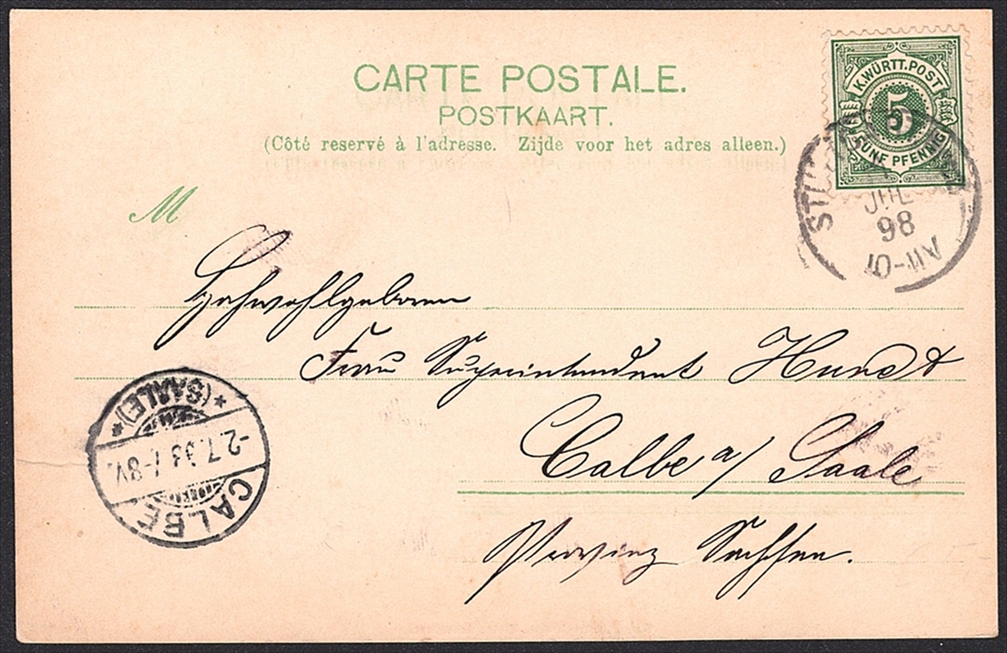 CARTE POSTALE.
POSTKAART.
(Côté reservé à l'adresse. Zijde voor het adres alleen.)
K.WÜRTT.POST
5
FÜNF PFENNIG
JUL
98
M
Hochwohlgeboren
Frau Superintendent Hundt
Calbe a/ Saale
Provinz Sachsen.
CALBE
*(SAALE)*
-2.7.98